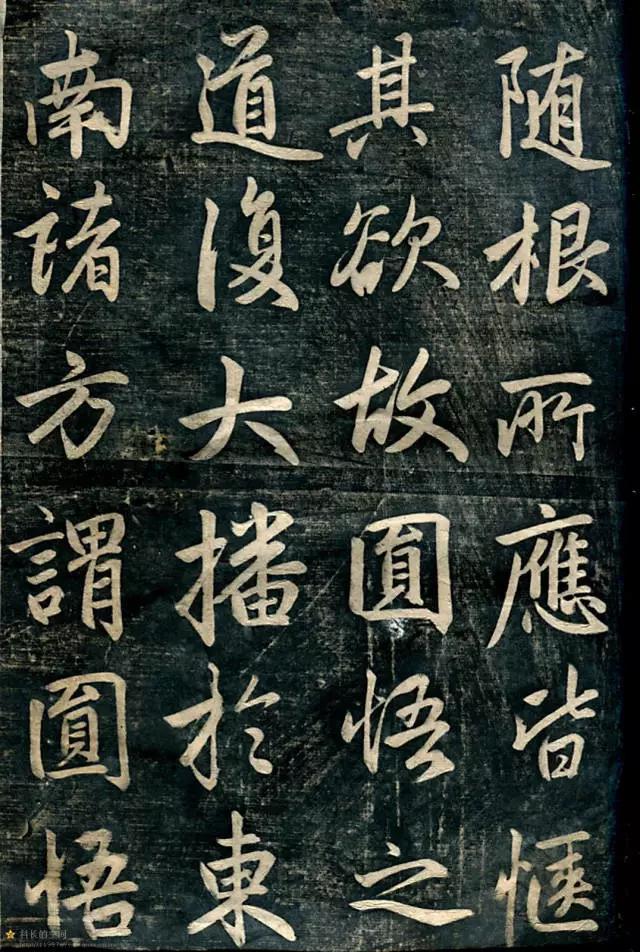 随根所應皆愜
其欲故圓悟之
道復大播於東
南諸方謂圓悟
科长的空间